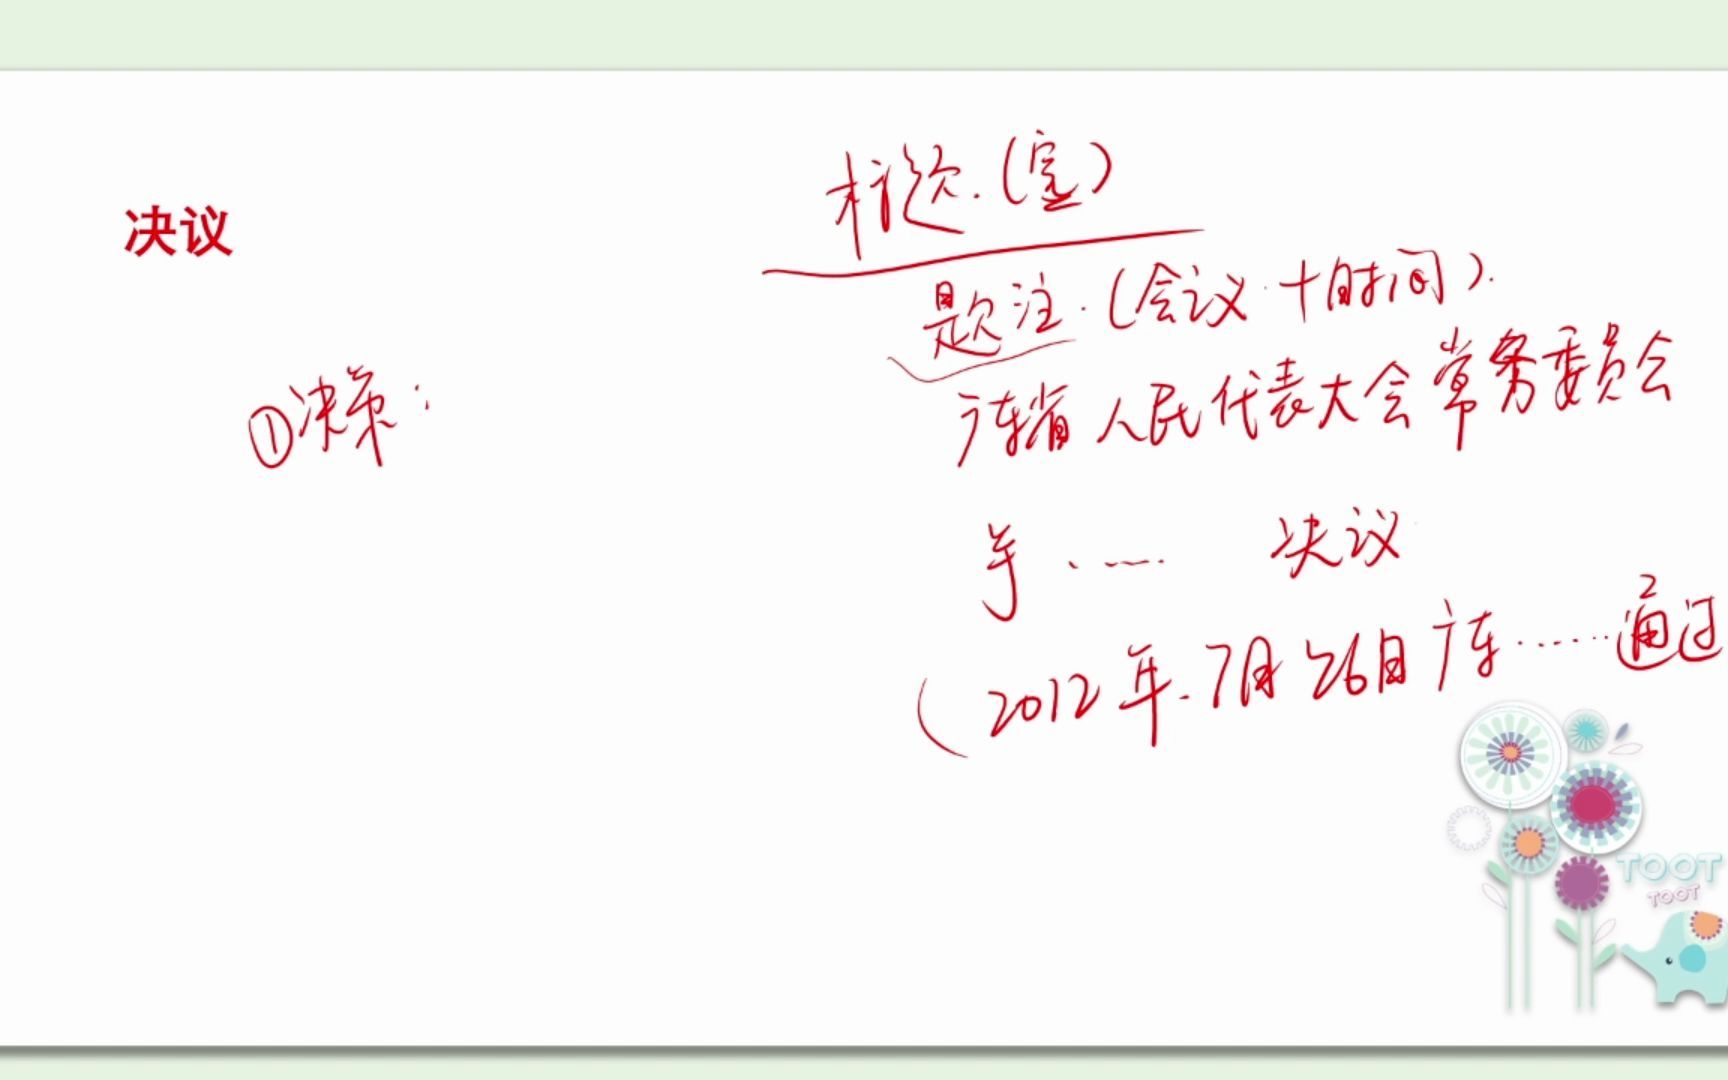 决议
标题.(宣)
题注.(会议十时间).
①决策:
广东省人民代表大会常务委员会
于...... 决议
(2012年.7月26日广东......通过
TOOT
TOOT